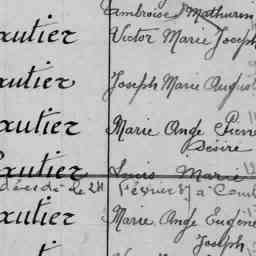 Ambroise Mathurin
autier Victor Marie Joseph
autier Joseph Marie August
autier Marie Ange Pierre
Désiré
autier Louis Marie
décédé le 24 février à
autier Marie Ange Eugène
Joseph